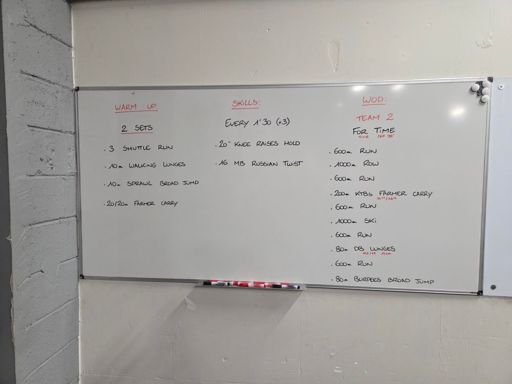 WARM UP
2 SETS
. 3 SHUTTLE RUN
. 10m WALKING LUNGES
. 10m SPRAWL BROAD JUMP
. 20/20m FARMER CARRY
SKILLS:
EVERY 1'30 (x3)
. 20" KNEE RAISES HOLD
. 16 MB RUSSIAN TWIST
WOD:
TEAM 2
FOR TIME
. 600m RUN
. 1000m ROW
. 600m RUN
. 200m KTBS FARMER CARRY
. 600m RUN
. 1000m SKI
. 600m RUN
. 80m DB LUNGES
. 600m RUN
. 80m BURPEES BROAD JUMP